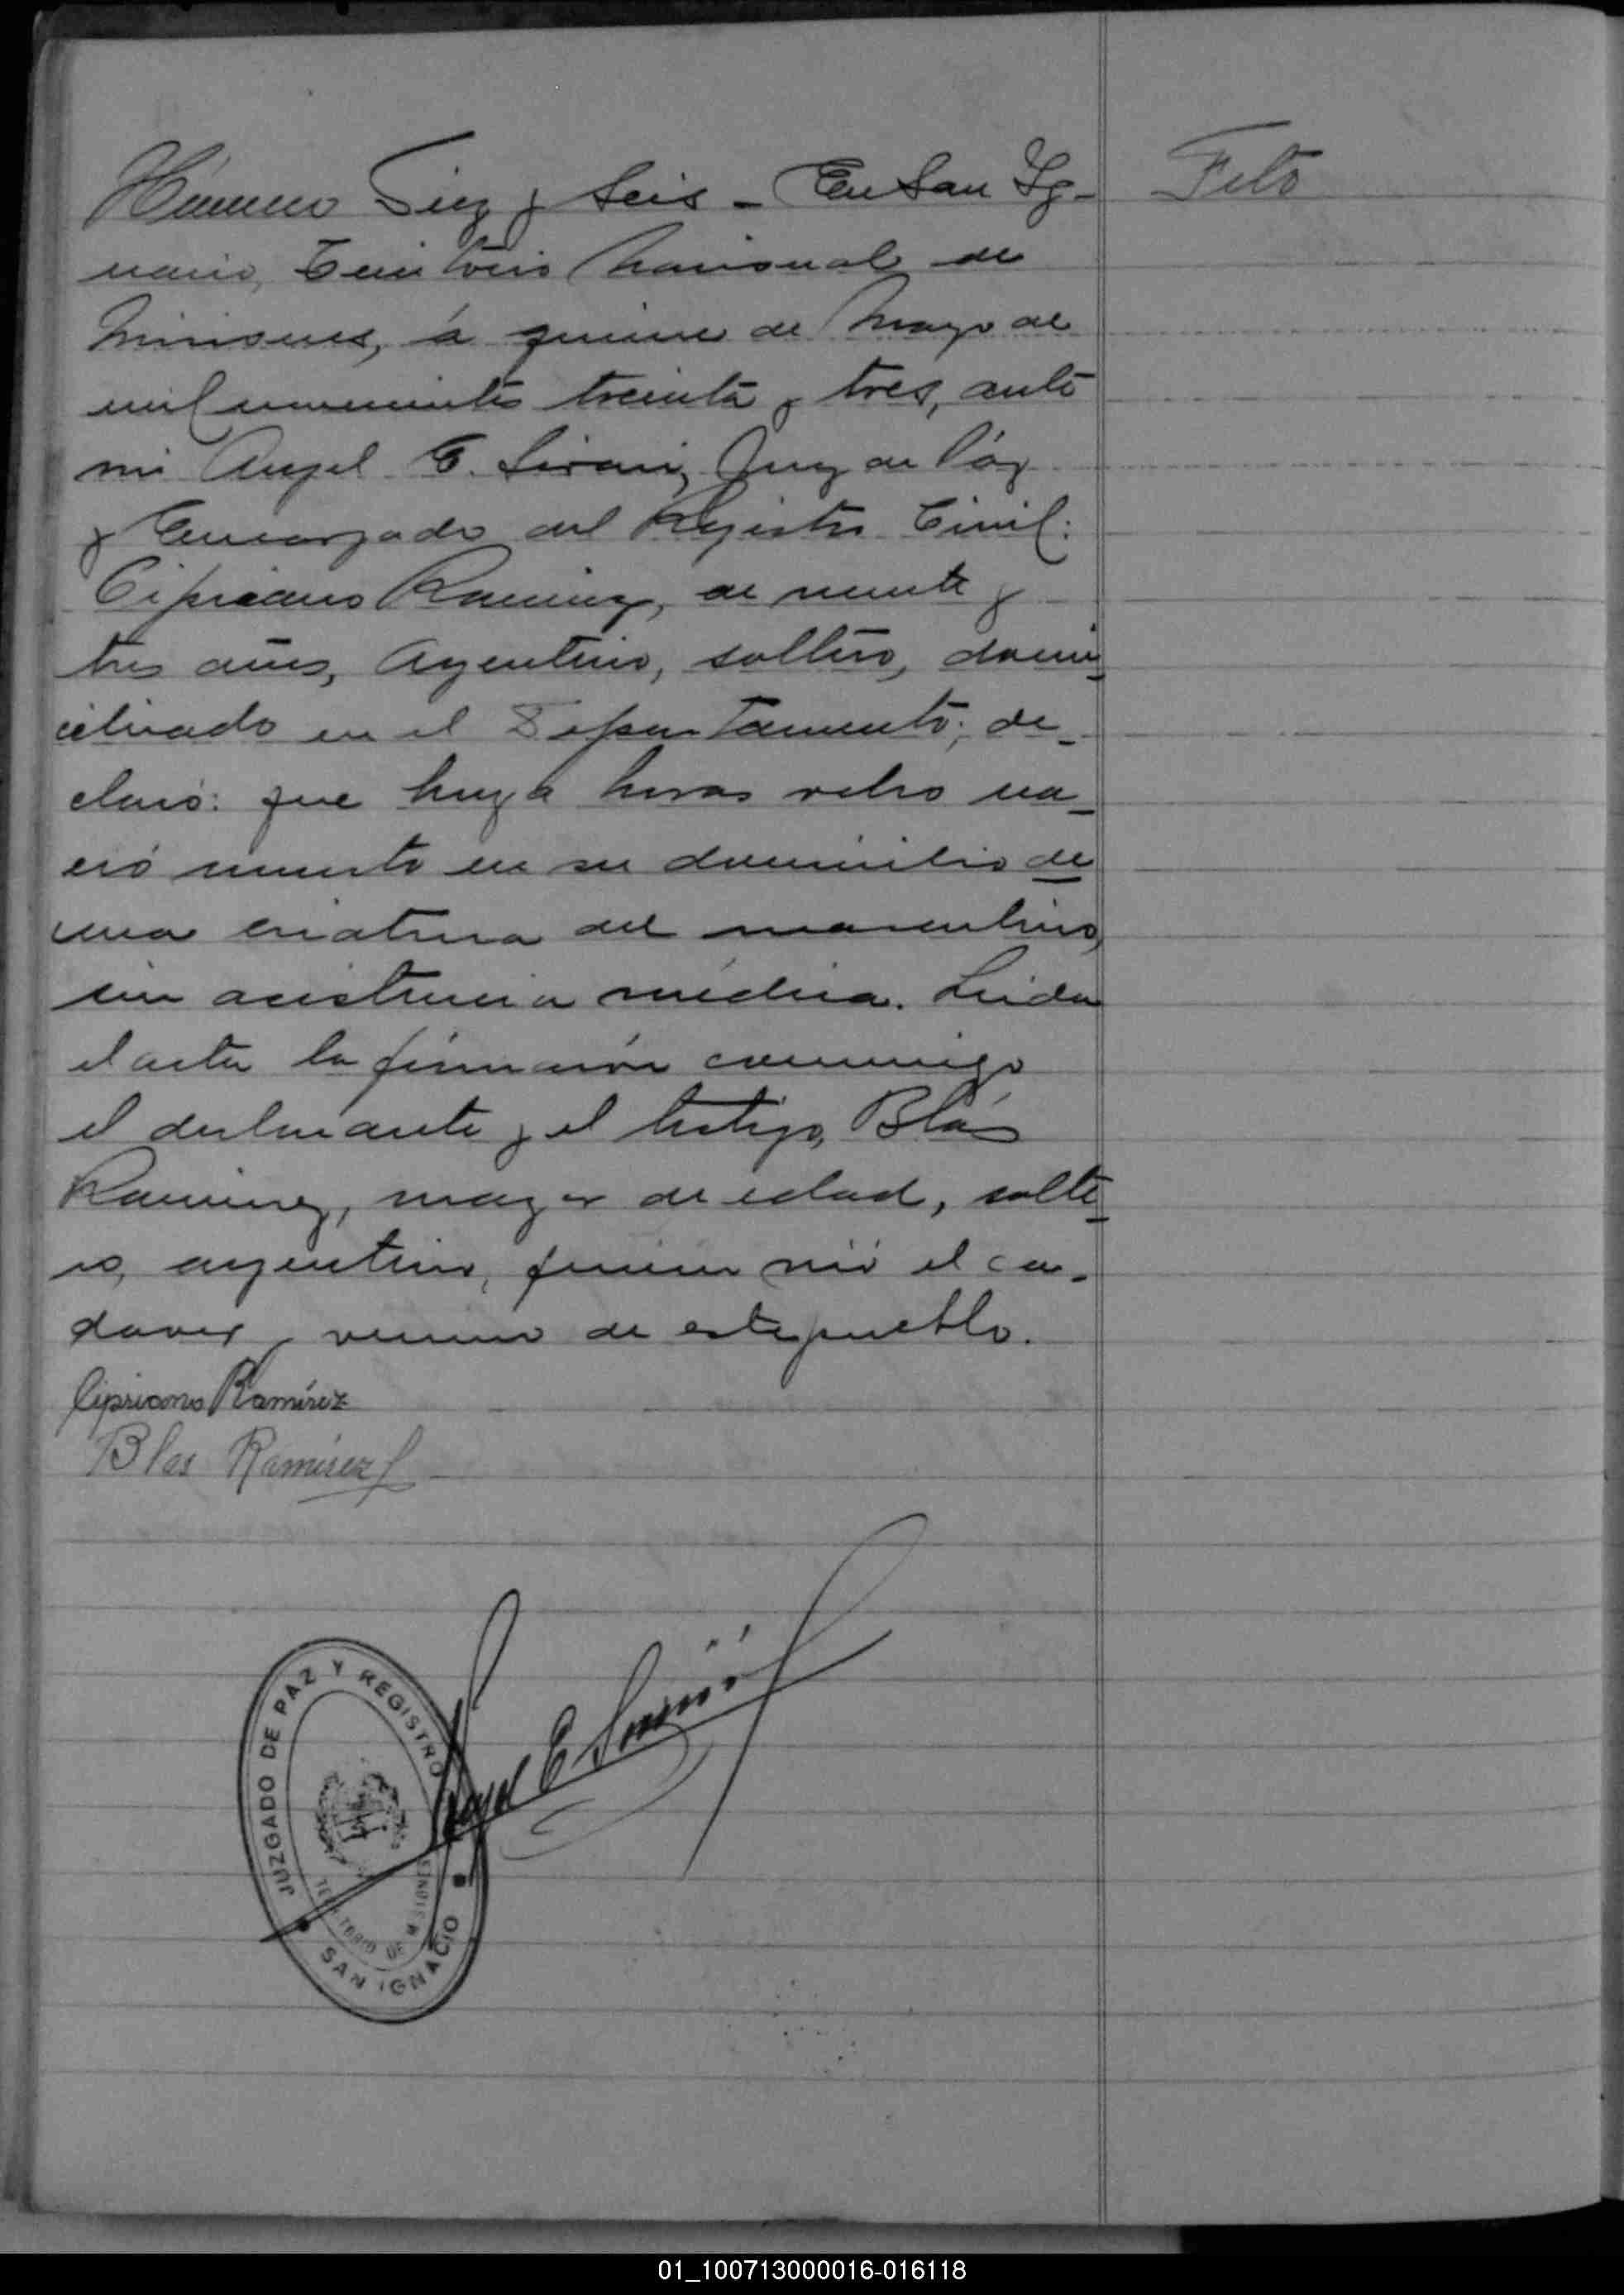 Número Diez y seis - En San Ig-
nacio, Territorio Nacional de
Misiones, á quince de Mayo de
mil novecientos treinta y tres, ante
mi Angel E. Juez de Páz
y Encargado del Registro Civil:
Cipriano Ramirez, de veinte y
tres años, Argentino, soltero, domi-
ciliado en el Departamento; de-
claró: que hoy a horas ocho na-
ció muerto en su domicilio de
una criatura del masculino,
sin asistencia médica. Leida
el acta la firmarón conmigo
el declarante y el testigo, Blás
Ramirez, mayor de edad, solte-
ro, argentino, quien vió el ca-
daver, vecino de este pueblo.
Cipriano Ramírez
Blas Ramirez
Angel E
JUZGADO DE PAZ Y REGISTRO
TERRITORIO DE MISIONES
SAN IGNACIO
Feto
01_100713000016-016118